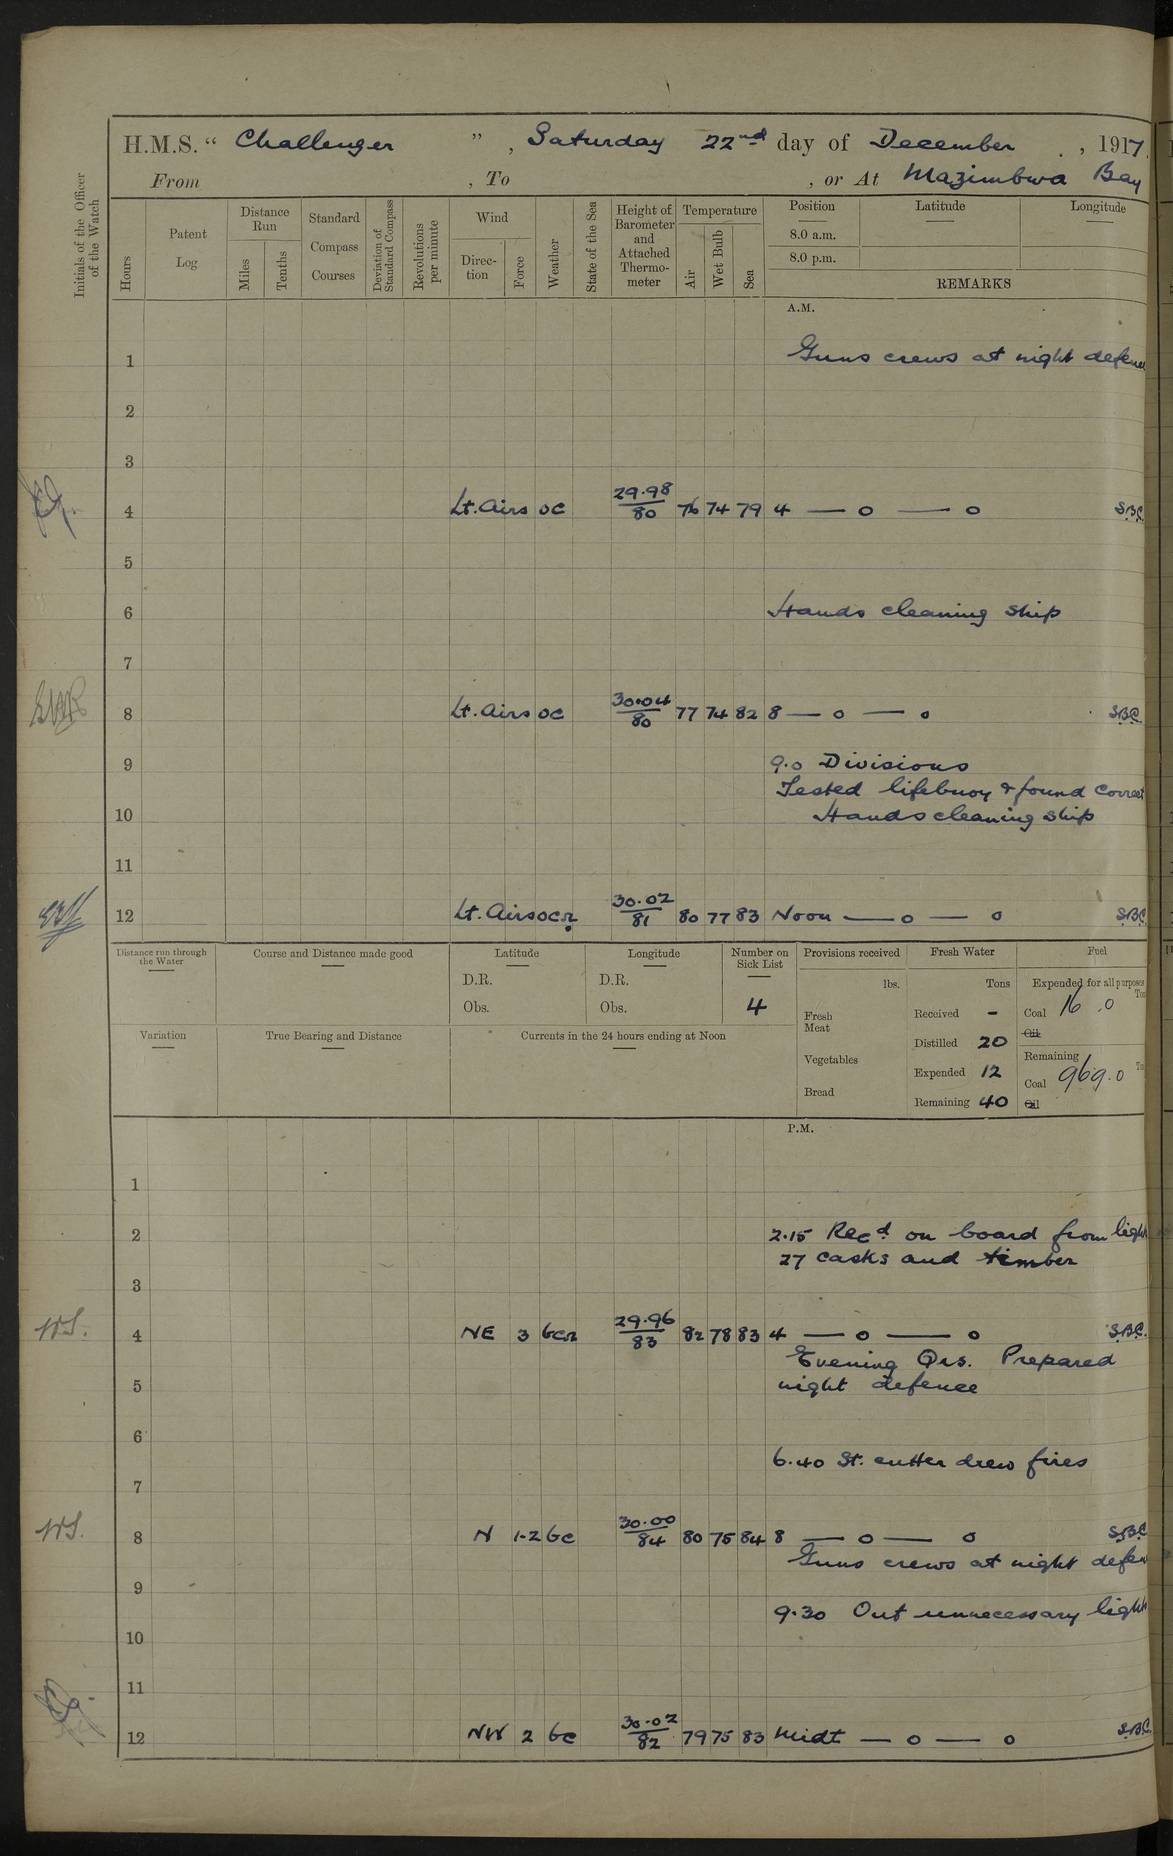 H.M.S. “ Challenger ” , Saturday 22nd day of December , 1917
From , To , or At Mazimbwa Bay
Initials of the Officer of the Watch
Hours
Patent Log
Distance Run
Miles
Tenths
Standard Compass Courses
Deviation of Standard Compass
Revolutions per minute
Wind
Direction
Force
Weather
State of the Sea
Height of Barometer and Attached Thermometer
Temperature
Air
Wet Bulb
Sea
Position
8.0 a.m.
8.0 p.m.
Latitude
Longitude
REMARKS
A.M.
1 Guns crews at night
2
3
4 Lt. Airs oc 29.98/80 76 74 79 4 — o — o S.B.C.
5
6 Hands cleaning ship
7
8 Lt. Airs oc 30.04/80 77 74 82 8 — o — o S.B.C.
9 9.0 Divisions
Tested lifebuoy & found correct
10 Hands cleaning ship
11
12 Lt. Airs ocr 30.02/81 80 77 83 Noon — o — o S.B.C.
Distance run through the Water
Course and Distance made good
Latitude
D.R.
Obs.
Longitude
D.R.
Obs.
Number on Sick List
4
Provisions received
lbs.
Fresh Meat
Vegetables
Bread
Fresh Water
Tons
Received -
Distilled 20
Expended 12
Remaining 40
Fuel
Expended for all purposes
Coal 16.0
Oil
Remaining
Coal 969.0
Oil
Variation
True Bearing and Distance
Currents in the 24 hours ending at Noon
P.M.
1
2 2.15 Recd on board from
27 casks and timber
3
4 NE 3 bcr 29.96/83 82 78 83 4 — o — o S.B.C.
Evening Qrs. Prepared
5 night defence
6
6.40 St. cutter drew fires
7
8 N 1-2 bc 30.00/84 80 75 84 8 — o — o S.B.C.
Guns crews at night
9
9.30 Out unnecessary
10
11
12 NW 2 bc 30.02/82 79 75 83 Midt — o — o S.B.C.